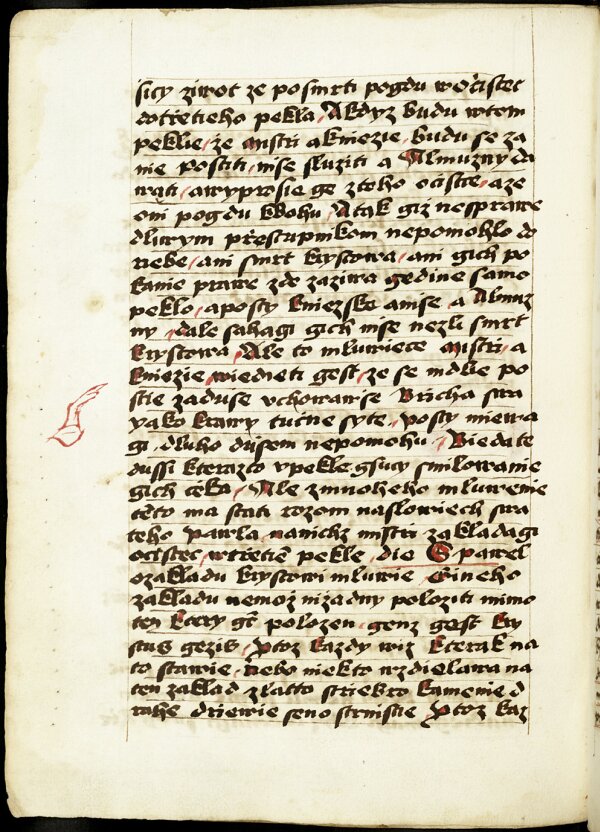 sicy ziwot ze posmrti pogdu wočistec
dotřetieho pekla, A kdyz budu wtom
peklie, že mistri akniezie, budu se za
nie postiti, mse sluziti a Almuzny da
wati, awyprosie ge ztoho očistce, aze
oni pogdu kbohu, A tak giz nesprawe
dliwym přestupnikom nepomohlo do
nebe, ani smrt krystowa, ani gich po
kanie prawe zde zaziwa gedine samo
peklo, aposty kniezske amse, a Almuz
ny, dale sahagi gich mse nezli smrt
krystowa, Ale to mluwiece mistri, a
kniezie, wiedieti gest, ze se mdlie po
stie zaduse vchowawse bricha swa
yako krawy tucne syte, posty miewa
gi, dluho dusem nepomohu, Biedate
dussi kterazto vpekle gsuci smilowanie
gich čeka, Ale zmnoheho mluwenie
těto ma stati rozom naslowiech swa
teho pawla, nanichz mistri zakladagi
očistec, wtřetiem pekle, die S pawel
ozakladu krystowi mluwie, gineho
zakladu nemoz nizadny poloziti mimo
ten ktery gt polozen, genz gest kry
stus gezis, ptoz kazdy wiz kterak na
to stawie, nebo niekto wzdielawa na
ten zaklad zlatto striebro kamenie d
rahe driewie seno strnistie ptoz kaz